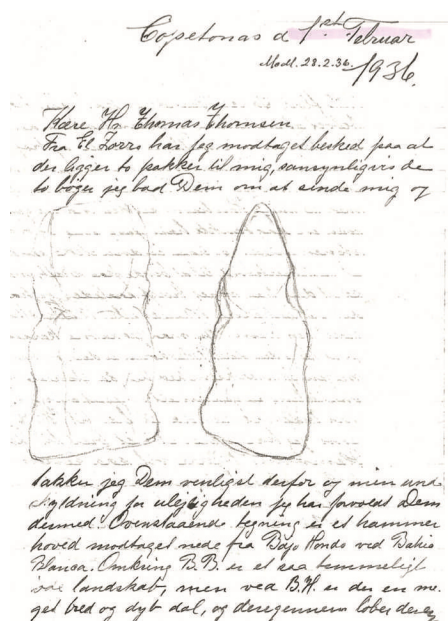 Copetonas d 1st Februar
Modt. 28.2.36.
1936.
Kære Hr Thomas Thomsen.
Fra El Zorro har jeg modtaget besked paa at
der ligger to pakker til mig, sansynligvis de
to bøger jeg bad Dem om at sende mig og
takker jeg Dem venligst derfor og min und
skyldning for ulejligheden jeg har forvoldt Dem
dermed. Ovenstaaende tegning er et hammer
hoved modtaget nede fra Bajo Hondo ved Bahia
Blanca. Omkring B.B. er et saa temmeligt
landskab, men ved B.H. er der en me
get bred og dyb dal, og deregennem løber